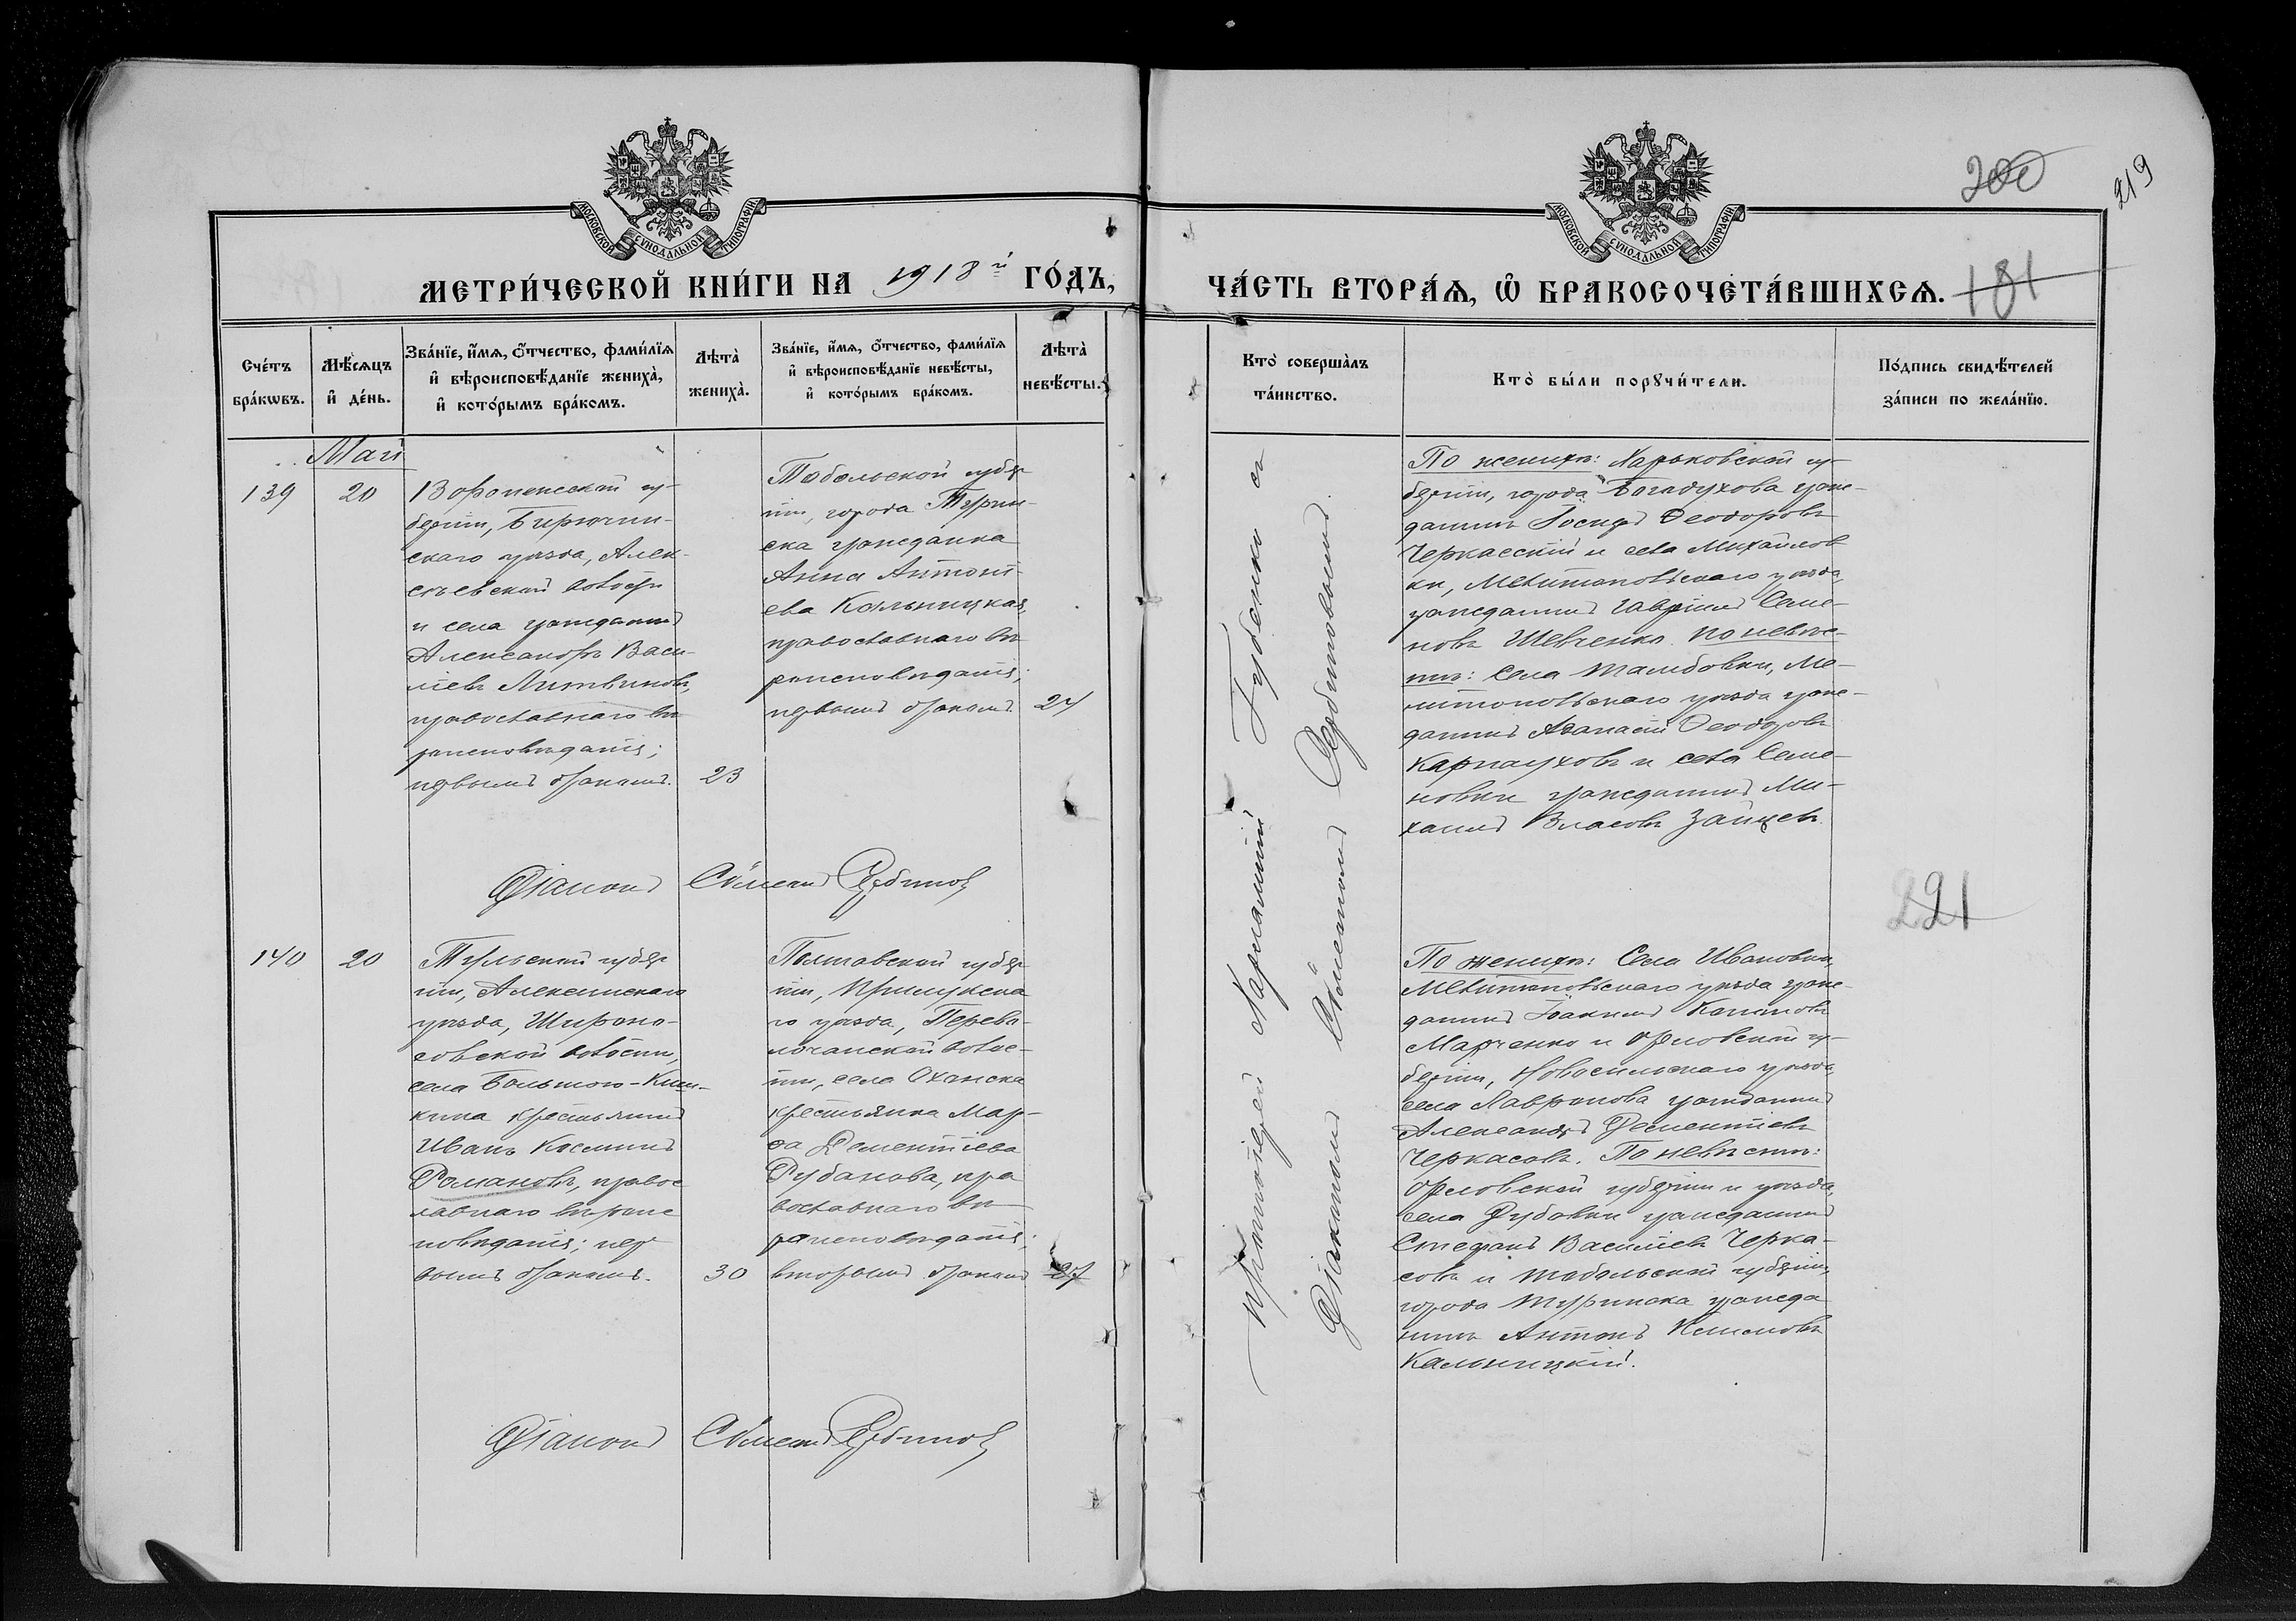 МОСКОВСКОЙ СѴНОДАЛЬНОЙ ТИПОГРАФІИ
МЕТРИ́ЧЕСКОЙ КНИ́ГИ НА 1918й ГО́ДЪ,
Сче́тъ бра́кѡвъ.
Мѣ́сяцъ и҆ де́нь.
Зва́нїе, и҆́мѧ, ѻ҆́тчество, фами́лїѧ
и҆ вѣроисповѣ́данїе жениха̀,
и҆ кото́рымъ бра́комъ.
Лѣта̀ жениха̀.
Зва́нїе, и҆́мѧ, ѻ҆́тчество, фами́лїѧ
и҆ вѣроисповѣ́данїе невѣ́сты,
и҆ кото́рымъ бра́комъ.
Лѣта̀ невѣ́сты.
Май
139
20
Воронежской гу-
берніи, Бирючин-
скаго уѣзда, Алек-
сѣевской волости
и села гражданинъ
Александръ Васи-
ліевъ Литвиновъ,
православнаго вѣ
роисповѣданія;
первымъ бракомъ.
23
Тобольской губер
ніи, города Турин-
ска гражданка
Анна Антоні-
ева Кольницкая,
православнаго вѣ
роисповѣданія;
первымъ бракомъ.
24
Діаконъ Сѵмеонъ
140
20
Тульской губер
ніи, Алексинскаго
уѣзда, Широно-
совской волости,
села Большого-
кина крестьянинъ
Иванъ Косминъ
Романовъ, правос
лавнаго вѣроис
повѣданія; пер
вымъ бракомъ.
30
Полтавской губер
ніи, Прилукска
го уѣзда, Перево
лочанской волос-
ти, села Оханска
крестьянка Мар-
ѳа Дементіева
Рубанова, пра
вославнаго вѣ
роисповѣданія;
вторымъ бракомъ
27
Діаконъ Сѵмеонъ
200
219
МОСКОВСКОЙ СѴНОДАЛЬНОЙ ТИПОГРАФІИ
ЧА́СТЬ ВТОРА́Ѧ, Ѡ҆ БРАКОСОЧЕТА́ВШИХСѦ.
181
Кто̀ соверша̀лъ та́инство.
Кто̀ бы́ли порꙋчи́тели.
По́дпись свидѣ́телей
за́писи по жела́нїю.
Протоіерей Харлампій Губенко съ
Діакономъ Сѵмеономъ
По женихѣ: Харьковской гу-
берніи, города Богодухова граж-
данинъ Іосифъ Ѳеодоровъ
Черкасскій и села Михайлов
ки, Мелитопольскаго уѣзда,
гражданинъ Гавріилъ Семе-
новъ Шевченко. По невѣс-
тѣ: села Тамбовки, Ме-
литопольскаго уѣзда граж-
данинъ Аѳанасій Ѳеодоровъ
Карпауховъ и села Семе-
новки гражданинъ Ми-
хаилъ Власовъ Зайцевъ
221
По женихѣ: Села Ивановки,
Мелитопольскаго уѣзда граж-
данинъ Іоакимъ
Марченко и Орловской гу-
берніи, Новосильскаго уѣзда,
села Лавронова гражданинъ
Александръ Дементіевъ
Черкасовъ. По невѣстѣ:
Орловской губерніи и уѣзда,
села Дубовки гражданинъ
Стефанъ Василіевъ Черка-
совъ и Тобольской губерніи,
города Туринска гражда
нинъ Антонъ Климовъ
Кальницкій.